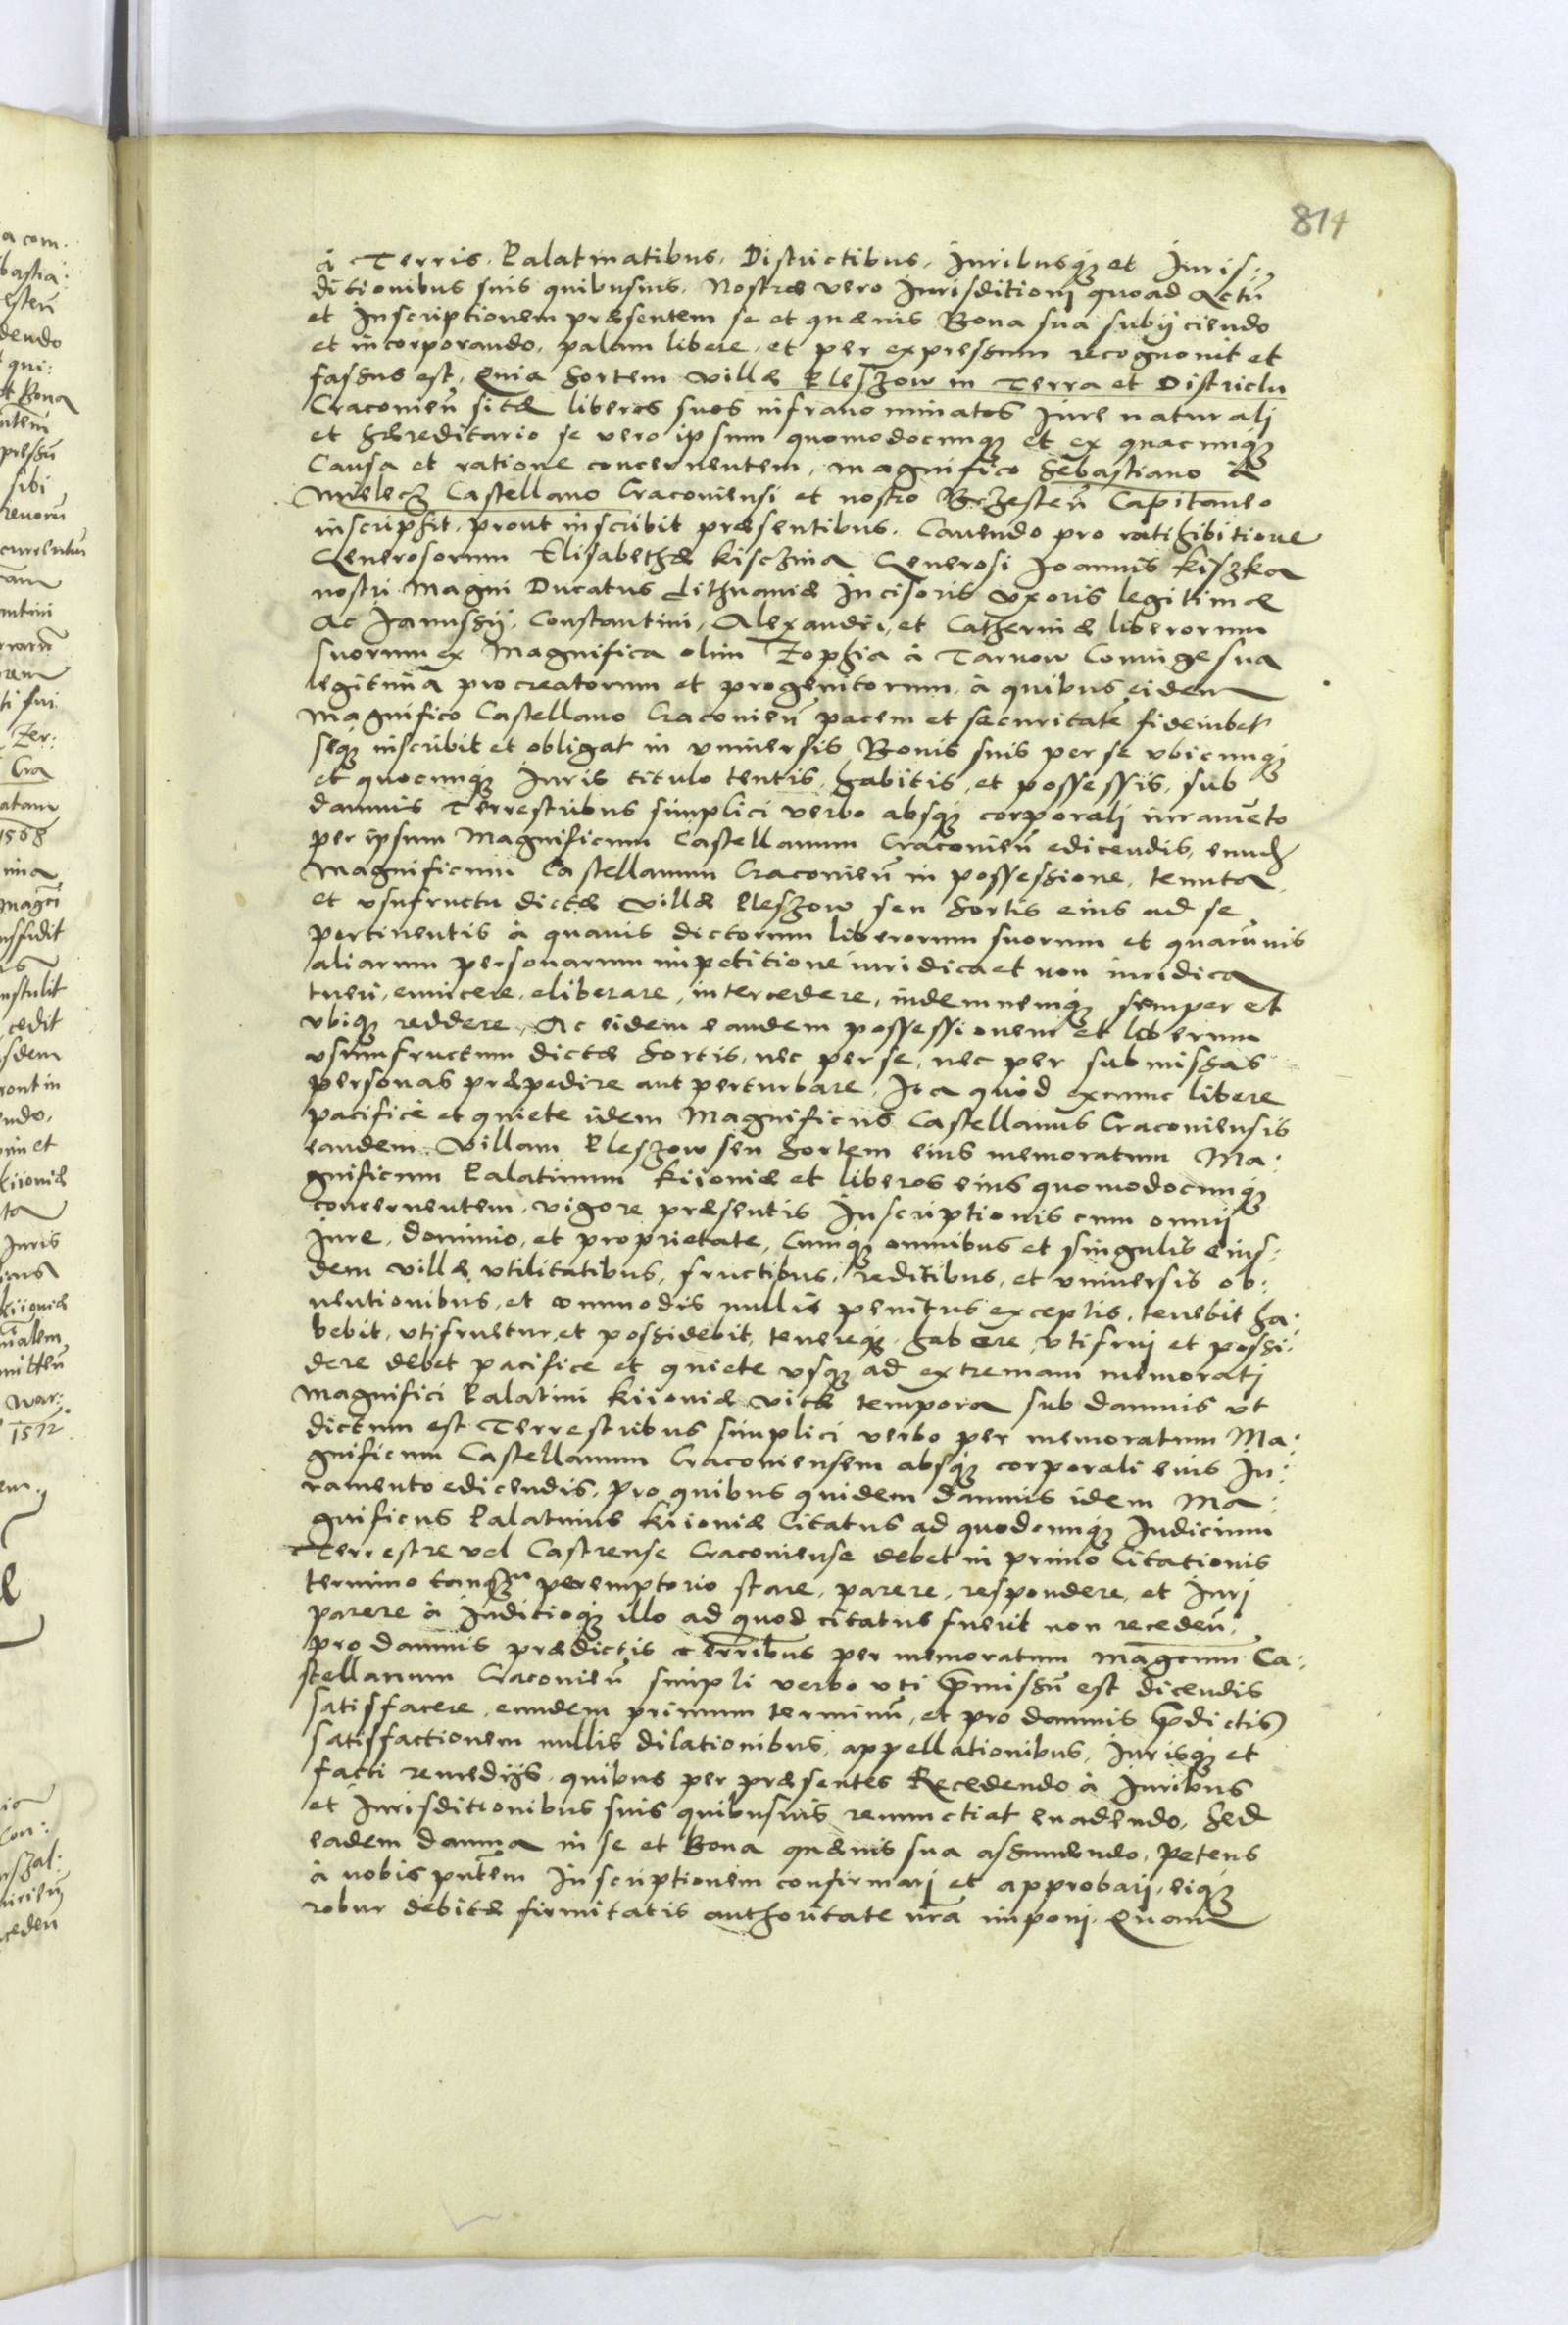 814
à Terris, Palatinatibus, Districtibus, Iuribusq; et Iuris:
ditionibus suis quibusuis. Nostræ vero Iurisditioni quoad Actũ
et Inscriptionem præsentem se et quæuis Bona sua subijciendo
et incorporando, palam libere, et per expressum recognouit et
fassus est. Quia Sortem Villæ Pleszow in Terra et Districtu
Cracovieñ sitæ liberos suos infranominatos Iure naturali
et hæreditario se vero ipsum quomodocunq; et ex quacunq;
Causa et ratione concernentem, Magnifico Sebastiano à
Mielecz Castellano Cracoviensi et nostro Brzesteñ Capitaneo
inscripsit, prout inscribit præsentibus. Cauendo pro ratihibitione
Generosorum Elisabethæ Kisczina Generosi Ioannis Kiszka
nostri Magni Ducatus Lithuaniæ Incisoris Vxoris legitimæ
Ac Ianussij, Constantini, Alexandri, et Catherinæ liberorum
suorum ex Magnifica olim Zophia à Tarnow Coniuge sua
legitima procreatorum et progenitorum, à quibus eidem
Magnifico Castellano Cracovieñ pacem et securitatẽ fideiubet
seq; inscribit et obligat in vniuersis Bonis suis per se vbicunq;
et quocunq; Iuris titulo tentis, habitis, et possessis, sub
damnis Terrestribus simplici verbo absq; corporali iuramẽto
per ipsum Magnificum Castellanum Cracovieñ edicendis, eund
Magnificum Castellanum Cracovieñ in possessione, tenuta
et vsufructu dictæ Villæ Pleszow seu Sortis eius ad se
pertinentis à quauis dictorum liberorum suorum et quarũuis
aliarum personarum impetitione iuridica et non iuridica
tueri, euincere, eliberare, intercedere, indemnemq; semper et
vbiq; reddere, Ac eidem eandem possessionem et liberum
vsumfructum dictæ Sortis, nec per se, nec per submissas
personas præpedire aut perturbare. Ita quòd exnunc libere
pacificè et quiete idem Magnificus Castellanus Cracoviensis
eandem Villam Pleszow seu Sortem eius memoratum Ma:
gnificum Palatinum Kiiouiæ et liberos eius quomodocunq;
concernentem, vigore præsentis Inscriptionis cum omni
Iure, dominio, et proprietate, Cumq; omnibus et singulis eius:
dem villæ vtilitatibus, fructibus, reditibus, et vniuersis ob:
uentionibus, et commodis nullis penitus exceptis, tenebit ha:
bebit, vtifruetur, et possidebit, tenereq; habere, vtifrui et possi:
dere debet pacifice et quiete vsq; ad extremam memorati
Magnifici Palatini Kiiouiæ vitæ tempora sub damnis vt
dictum est Terrestribus simplici verbo per memoratum Ma:
gnificum Castellanum Cracoviensem absq; corporali eius Iu:
ramento edicendis. Pro quibus quidem damnis idem Ma:
gnificus Palatinus Kiiouiæ Citatus ad quodcunq; Iudicium
Terrestre vel Castrense Cracoviense debet in primo Citationis
termino tanqᵐ peremptorio stare, parere, respondere, et Iuri
parere à Iuditioq; illo ad quod citatus fuerit non recedeñ,
pro damnis prædictis terribus per memoratum Magcum Ca:
stellanum Cracovieñ simpli verbo vti p̃missũ est dicendis
satisfacere, eundem primum terminũ, et pro damnis p̃dictis
satisfactionem nullis dilationibus, appellationibus, Iurisq; et
facti remedijs, quibus per præsentes Recedendo à Iuribus
et Iurisditionibus suis quibusuis renunctiat euadendo, Sed
eadem damna in se et Bona quæuis sua assumendo. Petens
à nobis pñtem Inscriptionem confirmari et approbari, eiq;
robur debitæ firmitatis authoritate nr̃a imponi. Quam